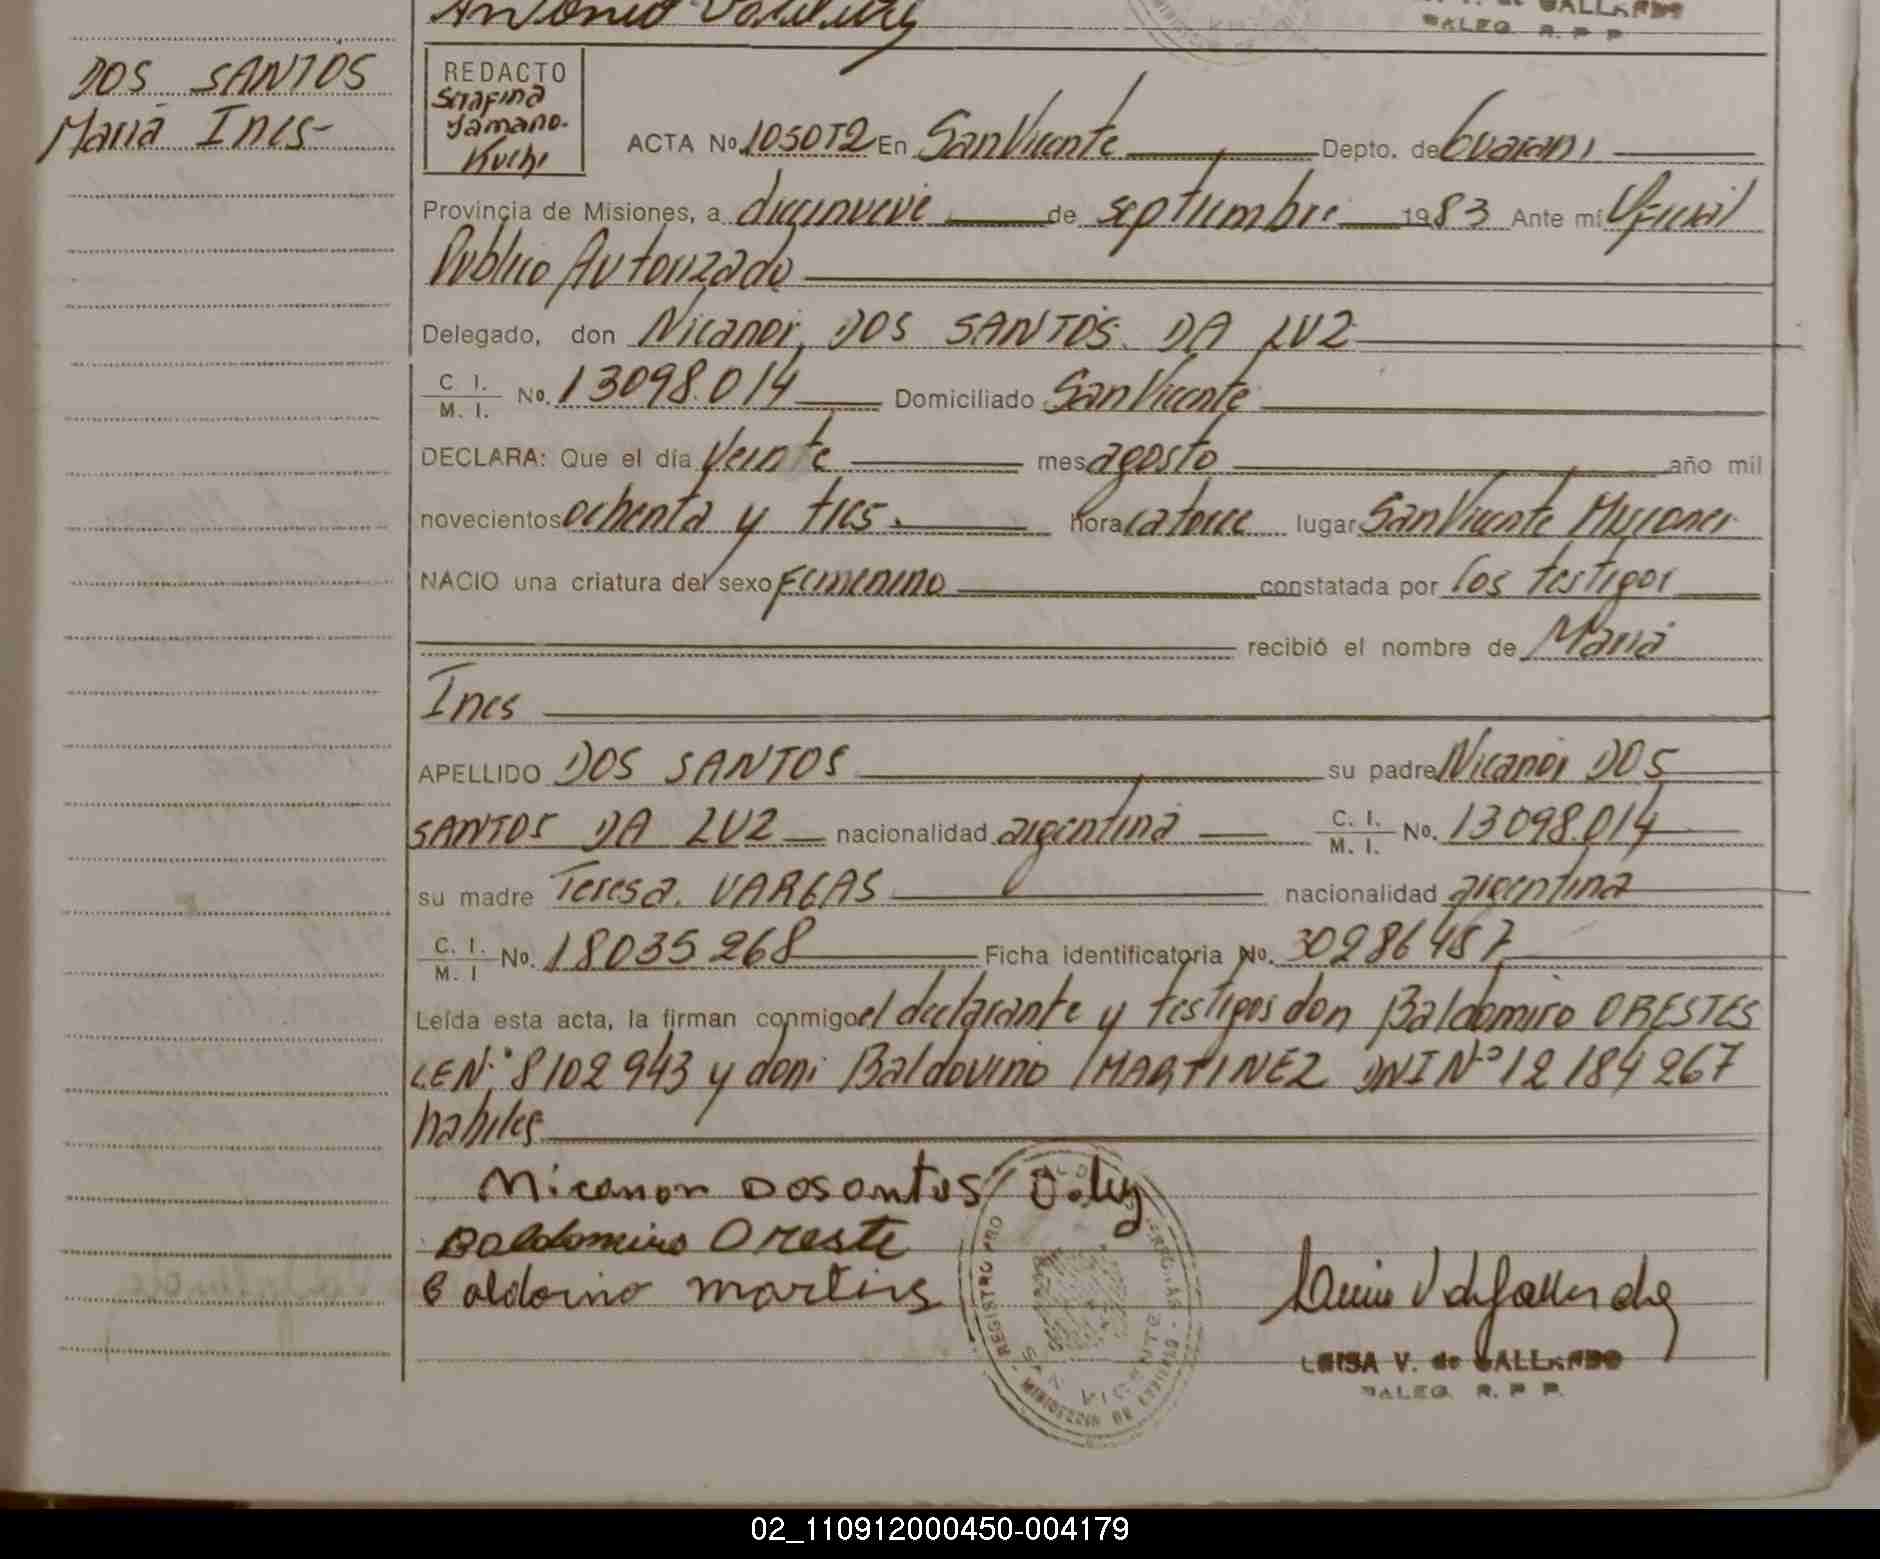 Antonio
DOS SANTOS
Maria Ines-
REDACTO
Serafina
Yamano-
Kuchi
ACTA No. 1050T2 En San Vicente Depto. de Guarani
Provincia de Misiones, a diecinueve de septiembre 1983 Ante mí Oficial
Publico Autorizado
Delegado, don Nicanor DOS SANTOS DA LUZ
C. I.
M. I. No. 13098.014 Domiciliado San Vicente
DECLARA: Que el día Veinte mes agosto año mil
novecientos ochenta y tres. hora catorce lugar San Vicente Misiones
NACIO una criatura del sexo Femenino constatada por los testigos
recibió el nombre de Maria
Ines
APELLIDO DOS SANTOS su padre Nicanor DOS
SANTOS DA LUZ nacionalidad argentina C. I. M. I. No. 13098.014
su madre Teresa VARGAS nacionalidad argentina
C. I. M. I No. 18035268 Ficha identificatoria No. 30286487
Leída esta acta, la firman conmigo el declarante y testigos don Baldomiro ORESTES
LEN° 8102943 y don Baldovino MARTINEZ DNI N° 12184267
habiles
Nicanor Dosantos
Baldomiro Oreste
Baldovino martins
REGISTRO PRO
SAN VICENTE
LUISA V. de GALLARDO
R. P. P.
02_110912000450-004179